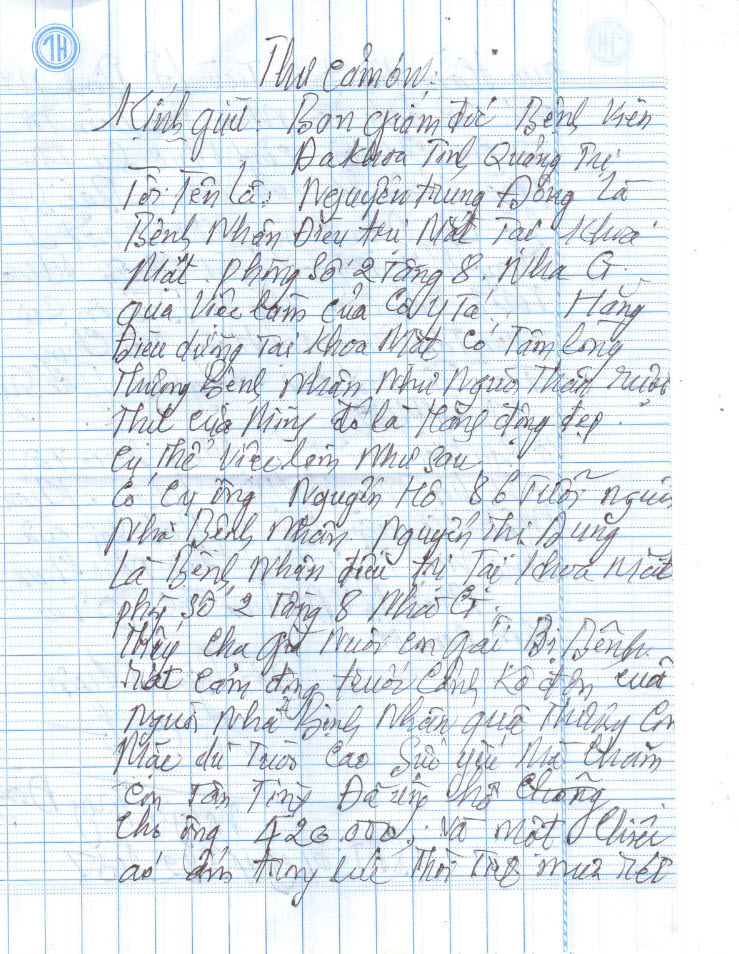 Thư cảm ơn:
Kính gửi: Ban giám đốc Bệnh Viện
Đa khoa Tỉnh Quảng Trị
Tôi Tên là: Nguyễn Trung Đồng là
Bệnh Nhân Điều trị Mắt Tại Khoa
Mắt. phòng Số 2 Tầng 8. Nhà G.
qua Việc làm của Cô y Tá Hằng
Điều dưỡng Tại Khoa Mắt có Tấm lòng
Thương Bệnh Nhân Như Người Thân ruột
Thịt của Mình đó là Hành động đẹp.
Cụ Thể Việc làm Như sau
Có Cụ ông Nguyễn Hồ 86 Tuổi người
Nhà Bệnh Nhân. Nguyễn Thị Dung
Là Bệnh Nhân điều trị Tại Khoa Mắt
phòng Số 2 Tầng 8 Nhà G.
Thấy Cha già Nuôi con gái Bị Bệnh.
Rất Cảm động trước Cảnh Cô đơn của
Người Nhà Bệnh Nhân quá Thương Con
Mặc dù Tuổi Cao Sức yếu Mà Chăm
Con Tận Tình Đã ủng hộ
Cho ông 420.000, và một Chiếc
áo ấm trong lúc Thời Tiết mưa rét